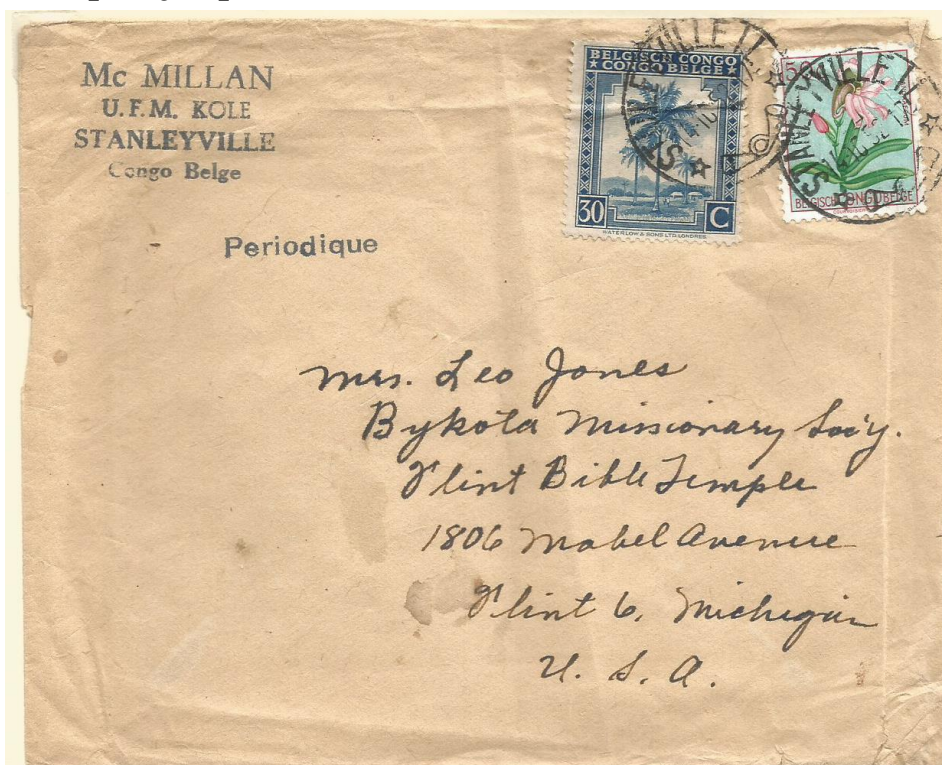 Mc MILLAN
U.F.M. KOLE
STANLEYVILLE
Congo Belge
Periodique
BELGISCH CONGO
CONGO BELGE
30 C
WATERLOW & SONS LTD. LONDRES
STANLEYVILLE
50
BELGISCH CONGO BELGE
STANLEYVILLE
Mrs. Leo Jones
Bykota Missionary Soc'y.
Flint Bible Temple
1806 Mabel Avenue
Flint 6, Michigan
U. S. A.